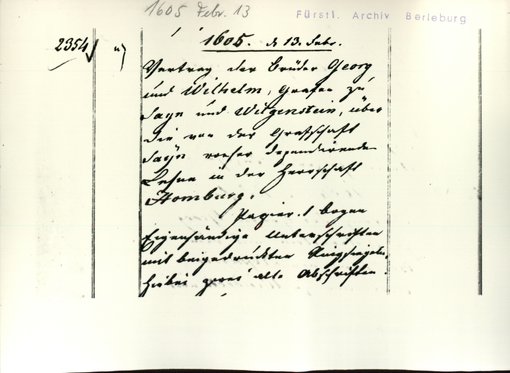 1605 Febr. 13
Fürstl. Archiv Berleburg
1605. d 13. Febr.
2354 a)
Vertrag der Brüder Georg
und Wilhelm, Grafen zu
Sayn und Witgenstein, über
die von der Grafschaft
Sayn vorher dependirende
Lehne in der Herrschaft
Homburg.
Papier. 1 bogen
Eigenhändige Unterschriften
mit beigedruckten Ringsiegeln.
Hiebei zwei alte Abschriften.